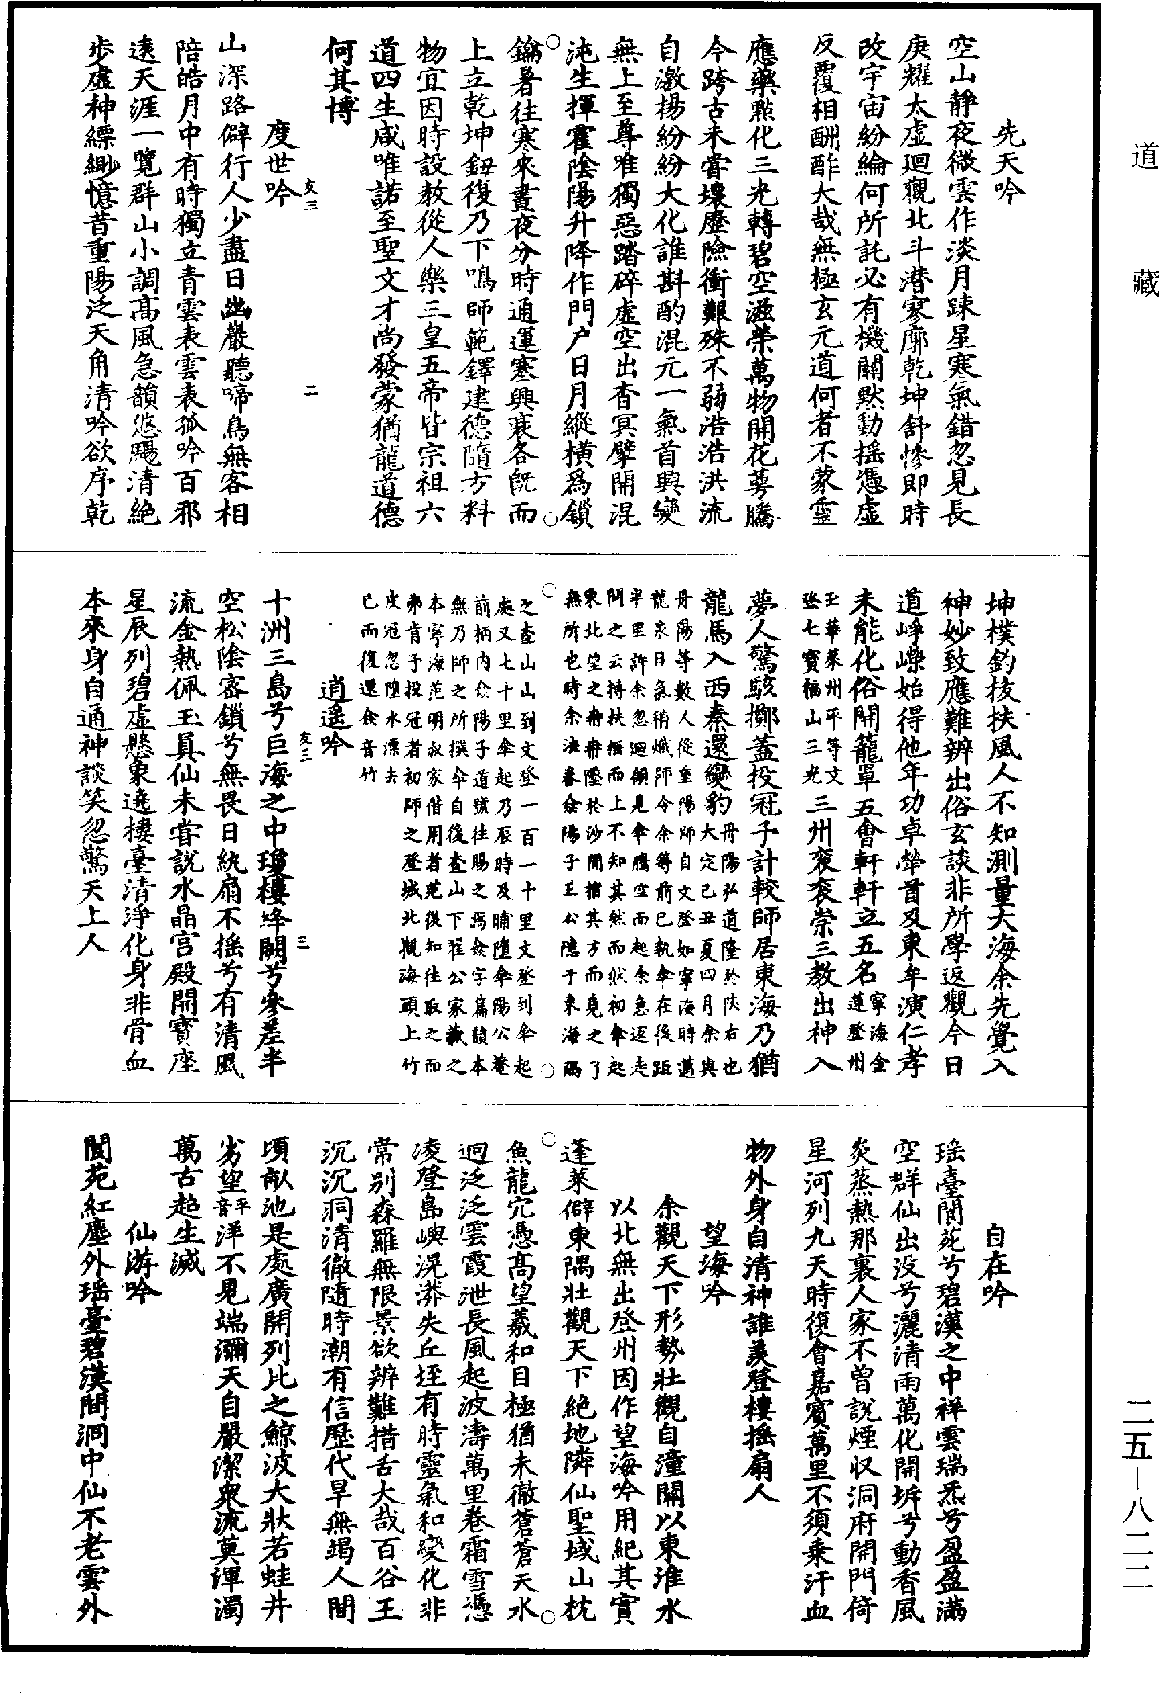 道藏
先天吟
空山靜夜微雲作淡月踈星寒氣錯忽見長
庚耀太虛迴觀北斗潛寥廓乾坤舒慘即時
改宇宙紛綸何所託必有機關默動搖憑虛
反覆相酬酢大哉無極玄元道何者不蒙靈
應藥點化三光轉碧空滋榮萬物開花萼騰
今跨古未嘗壞歷險衝艱殊不弱浩浩洪流
自激揚紛紛大化誰斟酌混元一氣首興變
無上至尊唯獨惡踏碎虛空出杳冥擘開混
沌生揮霍陰陽升降作門户日月縱橫爲鎖
鑰暑往寒來晝夜分時通運蹇興衰各既而
上立乾坤鈕復乃下鳴師範鐸建德隨方料
物宜因時設教從人樂三皇五帝皆宗祖六
道四生咸唯諾至聖文才尚發蒙猶龍道德
何其博
度世吟
友三 二
山深路僻行人少盡日幽巖聽啼鳥無客相
陪皓月中有時獨立青雲表雲表孤吟百邪
遠天涯一覽群山小調高風急韻悠颺清絶
步虛神縹緲憶昔重陽泛天角清吟欲序乾
坤樸釣拔扶風人不知測量大海余先覺入
神妙致應難辨出俗玄談非所學返觀今日
道崢嶸始得他年功卓犖首及東牟演仁孝
未能化俗開籠罩五會軒軒立五名寧海金蓮登州
玉華萊州平等文登七寶福山三光三州衮衮崇三教出神入
夢人驚駭擲蓋投冠予計較師居東海乃猶
龍馬入西秦還變豹丹陽弘道隆於陝右也大定己丑夏四月余與
丹陽等數人從重陽師自文登如寧海時邁
龍泉日氣稍熾師令余等前已執傘在後距
半里許余忽迴顧見傘騰空而起余急返走
問之云持扶摇而上不知其然而然初傘起
東北望之冉冉墜於沙間揩其方而竟之了
無所也時余法眷俞陽子王公隱于東海隅
之查山山到文登一百一十里文登到傘起
處又七十里傘起乃辰時及晡墮傘陽公菴
前柄内俞陽子道號往賜之焉俞字篇韻本
無乃師之所撰傘自復查山下程公家藏之
本寧海范明叔家借用者范後知往取之而
弗肯予投冠者初師之登城北觀海頭上竹
皮冠忽墮水漂去
已而復還俞音竹
逍遥吟
十洲三島兮巨海之中瓊樓絳闕兮參差半
友三 三
空松陰密鎖兮無畏日紈扇不摇兮有清風
流金熱佩玉真仙未嘗說水晶宮殿開寳座
星辰列碧虛懸東遶樓臺清淨化身非骨血
本來身自通神談笑忽驚天上人
自在吟
瑶臺閬苑兮碧漢之中祥雲瑞炁兮盈盈滿
空群仙出没兮灑清雨萬化開坼兮動香風
炎蒸熱那裏人家不曾說煙收洞府開門倚
星河列九天時復會嘉賓萬里不須乗汗血
物外身自清神誰羨登樓摇扇人
望海吟
余觀天下形勢壯觀自潼關以東淮水
以北無出登州因作望海吟用紀其實
蓬萊僻東隅壯觀天下絶地隣仙聖域山枕
魚龍穴憑高望羲和目極猶未徹蒼蒼天水
迴泛泛雲霞泄長風起波濤萬里卷霜雪憑
凌登島嶼滉漭失丘垤有時靈氣和變化非
常别森羅無限景欲辨難措舌大哉百谷王
沉沉洞清徹隨時潮有信歷代旱無竭人間
頃畝池是處廣開列比之鯨波大狀若蛙井
劣望平音洋不見端瀰天自嚴潔衆流莫渾濁
萬古超生滅
仙游吟
閬苑紅塵外瑶臺碧漢間洞中仙不老雲外
二五—八二二